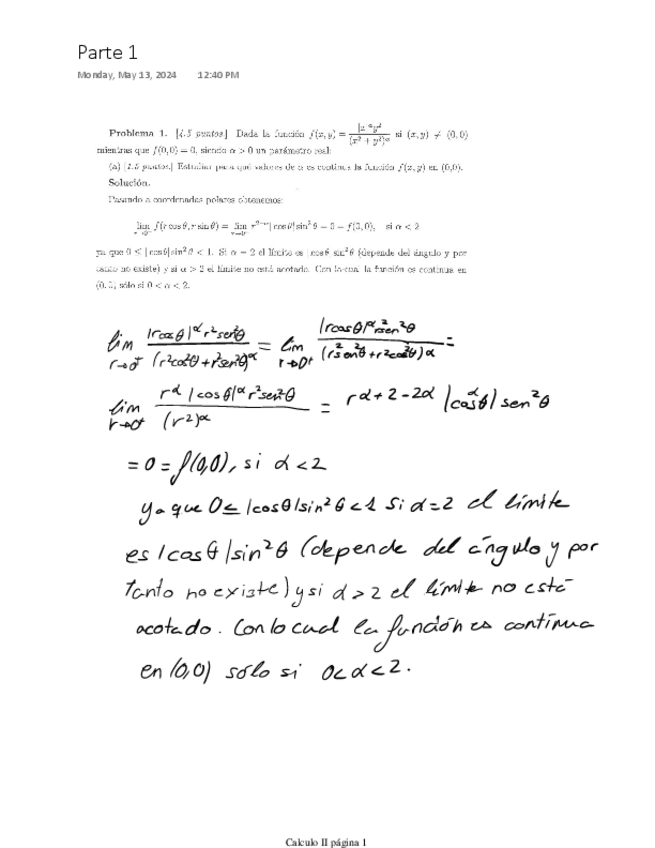 Parte 1
Monday, May 13, 2024 12:40 PM
Problema 1. [4.5 puntos] Dada la función f(x, y) = |x|^α y² / (x² + y²)^α si (x, y) ≠ (0, 0)
mientras que f(0, 0) = 0, siendo α > 0 un parámetro real:
(a) [1.5 puntos] Estudiar para qué valores de α es continua la función f(x, y) en (0,0).
Solución.
Pasando a coordenadas polares obtenemos:
lim r→0⁺ f(r cos θ, r sin θ) = lim r→0⁺ r^(2−α) |cos θ| sin² θ = 0 = f(0, 0), si α < 2
ya que 0 ≤ |cos θ| sin² θ < 1. Si α = 2 el límite es |cos θ| sin² θ (depende del ángulo y por
tanto no existe) y si α > 2 el límite no está acotado. Con lo cual la función es continua en
(0, 0) sólo si 0 < α < 2.
lim r→0⁺ |rcosθ|^α r²sen²θ / (r²cos²θ + r²sen²θ)^α = lim r→0⁺ |rcosθ|^α r²sen²θ / (r²sen²θ + r²cos²θ)^α =
lim r→0⁺ r^α |cosθ|^α r²sen²θ / (r²)^α = r^(α+2−2α) |cosθ|^α sen²θ
= 0 = f(0,0), si α < 2
ya que 0 ≤ |cosθ|sin²θ < 1 Si α=2 el límite
es |cosθ|sin²θ (depende del ángulo y por
tanto no existe) y si α > 2 el límite no está
acotado. Con lo cual la función es continua
en (0,0) sólo si 0<α<2.
Calculo II página 1